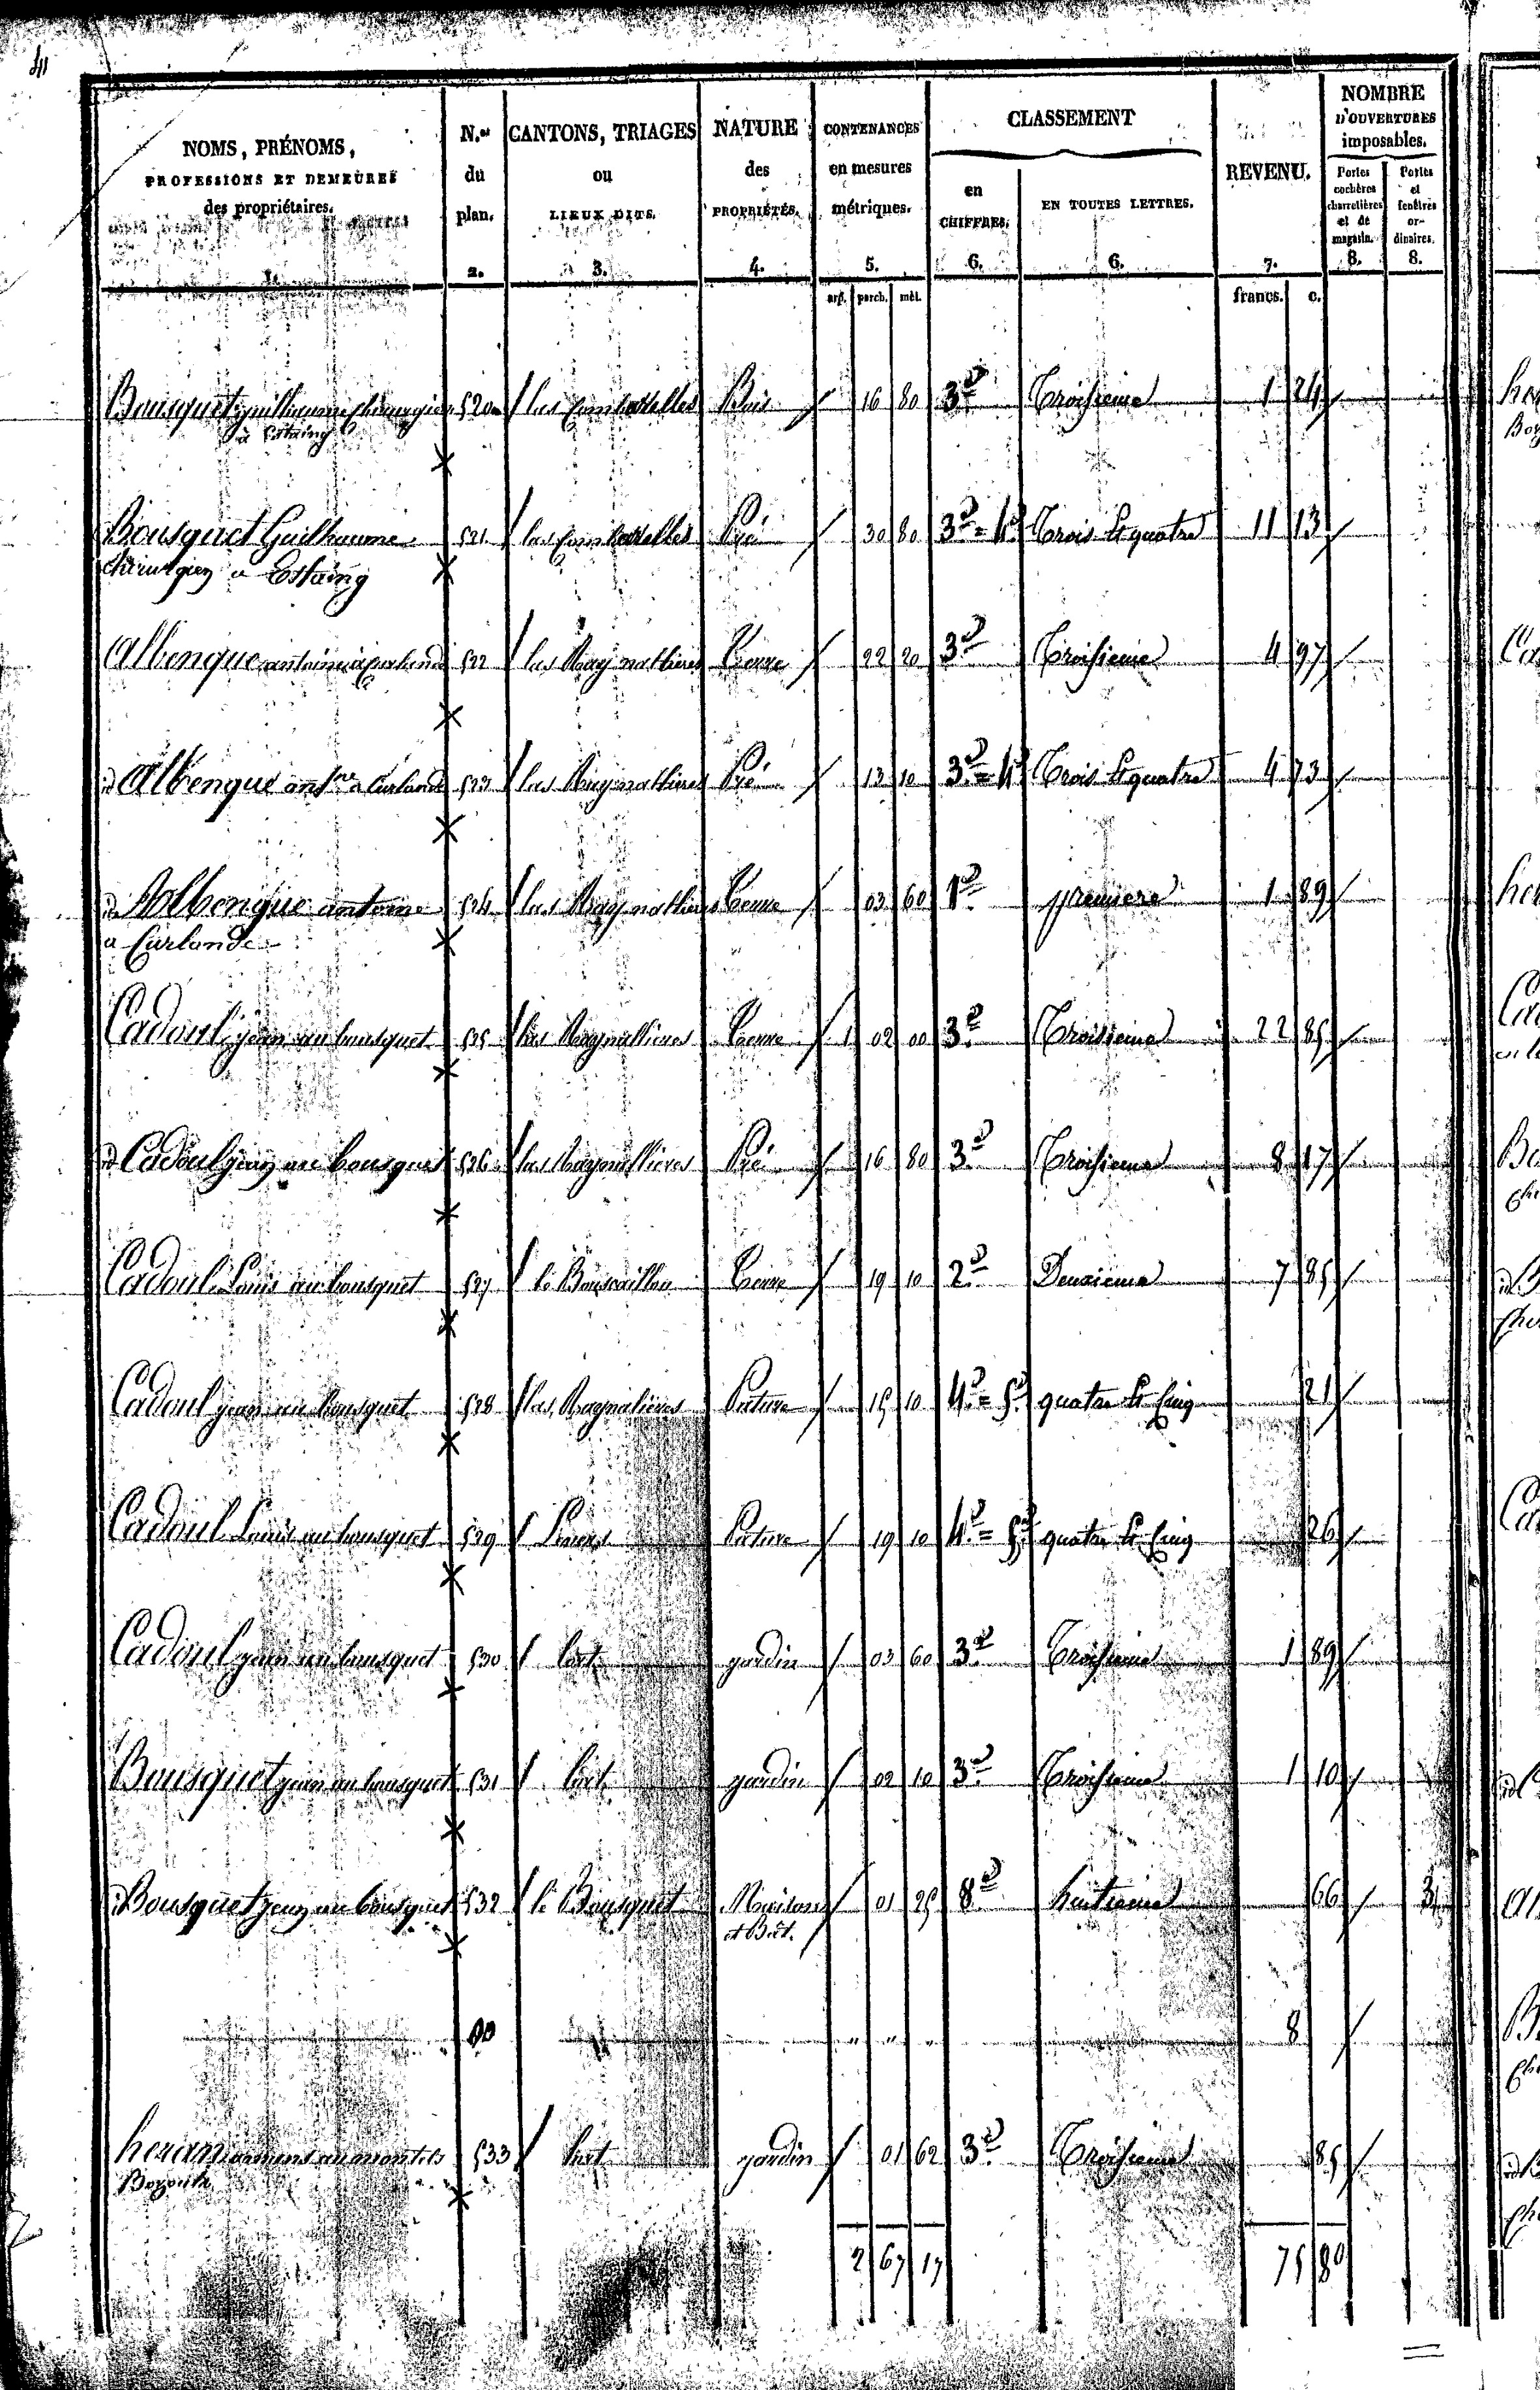 41
NOMS, PRÉNOMS, PROFESSIONS ET DEMEURES des propriétaires. 1.
N.os du plan. 2.
CANTONS, TRIAGES ou LIEUX DITS. 3.
NATURE des PROPRIÉTÉS. 4.
CONTENANCES en mesures métriques. 5.
CLASSEMENT
en CHIFFRES. 6.
EN TOUTES LETTRES. 6.
REVENU. 7.
NOMBRE D'OUVERTURES imposables.
Portes cochères charretières et de magasin. 8.
Portes et fenêtres ordinaires. 8.
arp. perch. mèt. francs. c.
Bousquet guilhaume chirurgien 520 las Combatelles Bois 16 80 3e Troisieme 1 24
à Estaing
Bousquet Guilhaume 521 las Combatelles Pré 30 80 3e = 4e Trois et quatre 11 13
chirurgien a Estaing
Albenque antoine à Curlande 522 las Raynathieres Terre 22 20 3e Troisieme 4 97
id Albenque antne a Curlande 523 las Raynathieres Pré 13 10 3e = 4e Trois et quatre 4 73
id Albenque antoine 524 las Raynathieres Terre 03 60 1e premiere 1 89
a Curlande
Cadoul jean au bousquet 525 las Raynallieres Terre 1 02 00 3e Troisieme 22 85
id Cadoul jean au bousquet 526 las Raynallieres Pré 16 80 3e Troisieme 8 17
Cadoul Louis au bousquet 527 le Terre 19 10 2e Deuxieme 7 85
Cadoul jean au bousquet 528 las Raynalieres Pature 15 10 4e = 5e quatre et Cinq 21
Cadoul Louis au bousquet 529 Pature 19 10 4e = 5e quatre et Cinq 26
Cadoul jean au bousquet 530 lort jardin 03 60 3e Troisieme 1 89
Bousquet jean au bousquet 531 lort jardin 02 10 3e Troisieme 1 10
id Bousquet jean au bousquet 532 le Bousquet Maison 01 25 8e huitieme 66 3
et Bât.
" " " 8
au montels 533 lort jardin 01 62 3e Troisieme 85
2 67 17 75 80